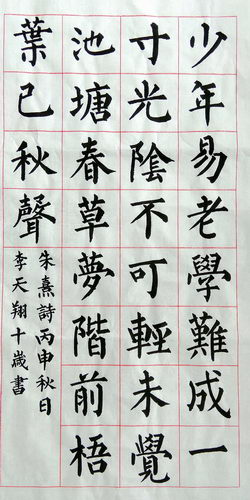 少年易老學難成一
寸光陰不可輕未覺
池塘春草夢階前梧
葉已秋聲
朱熹詩丙申秋日
李天翔十歲書